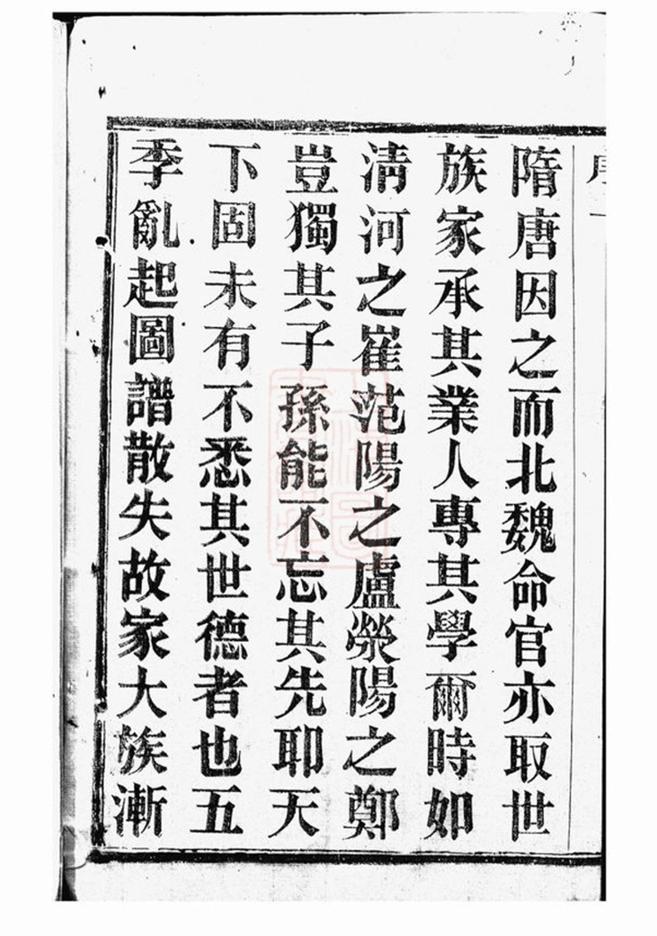 隋唐因之而北魏命官亦取世
族家承其業人專其學爾時如
清河之崔范陽之盧滎陽之鄭
豈獨其子孫能不忘其先耶天
下固未有不悉其世德者也五
季亂起圖譜散失故家大族漸